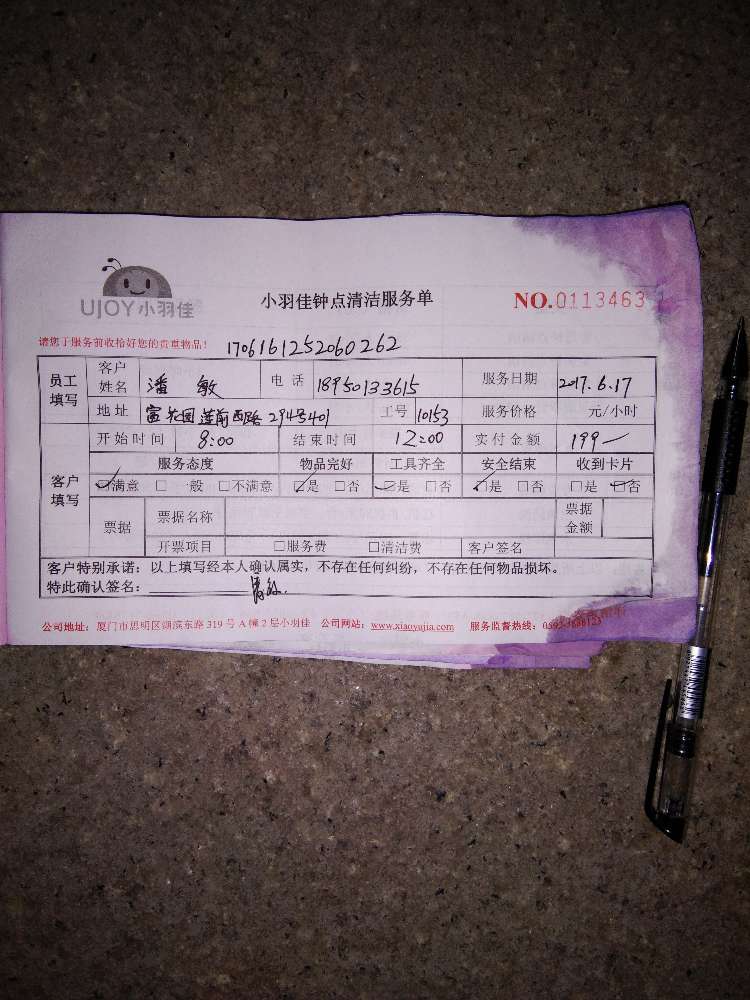 UJOY小羽佳
小羽佳钟点清洁服务单
NO.0113463
请您于服务前收拾好您的贵重物品!
170616125206026​2
员工填写 客户姓名 潘敏 电话 18950133615 服务日期 2017.6.17
地址 富花园莲前西路294号401 工号 10153 服务价格 元/小时
客户填写 开始时间 8:00 结束时间 12:00 实付金额 199一
服务态度 物品完好 工具齐全 安全结束 收到卡片
☑满意 □一般 □不满意 ☑是 □否 ☑是 □否 ☑是 □否 □是 ☑否
票据 票据名称 票据金额
开票项目 □服务费 □清洁费 客户签名
客户特别承诺:以上填写经本人确认属实,不存在任何纠纷,不存在任何物品损坏。
特此确认签名: 潘敏
公司地址:厦门市思明区湖滨东路319号A幢2层小羽佳 公司网站:www.xiaoyujia.com 服务监督热线: